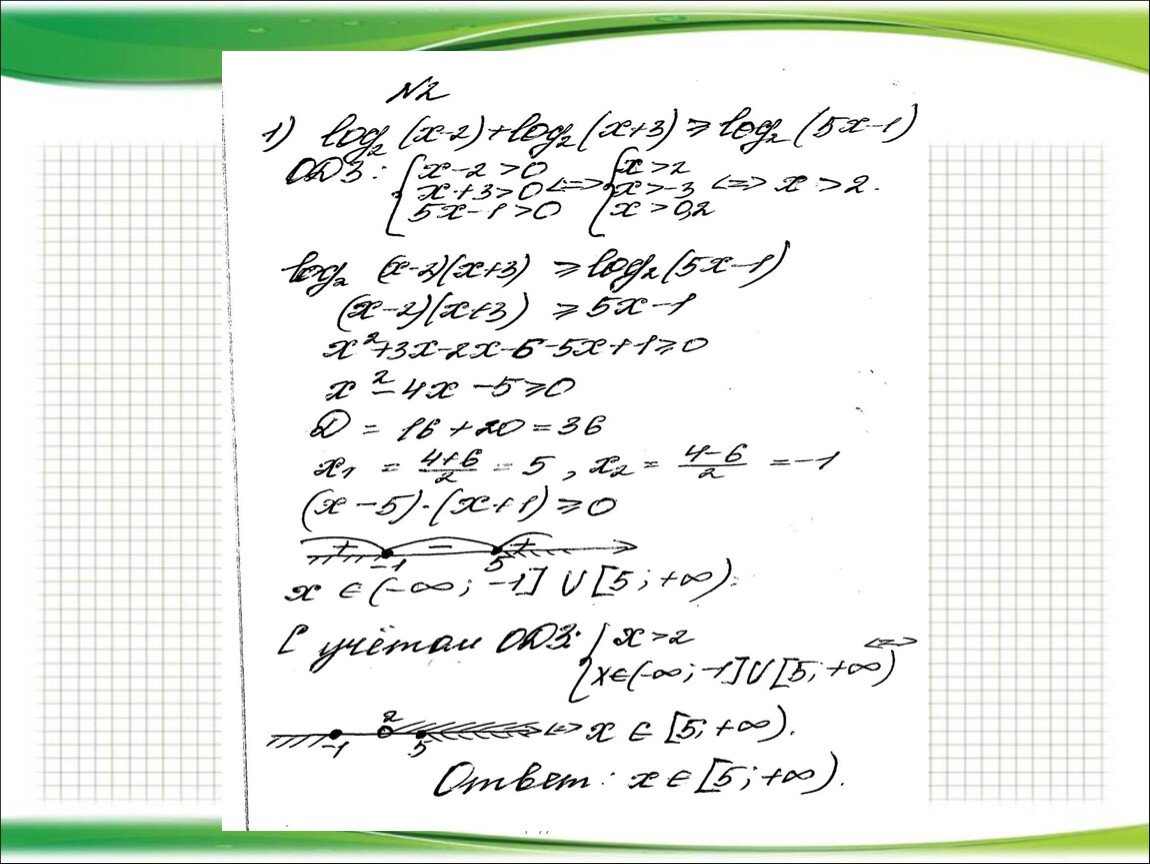 N2
1) log₂(x-2)+log₂(x+3) ⩾ log₂(5x-1)
ОДЗ: { x-2>0 <=> { x>2
x+3>0 x>-3 <=> x>2.
5x-1>0 x>0,2
log₂ (x-2)(x+3) ⩾ log₂(5x-1)
(x-2)(x+3) ⩾ 5x-1
x²+3x-2x-6-5x+1⩾0
x²-4x-5⩾0
D = 16+20=36
x₁ = (4+6)/2 = 5, x₂ = (4-6)/2 = -1
(x-5)·(x+1)⩾0
+ - +
-1 5
x ∈ (-∞; -1] ∪ [5; +∞).
С учётом ОДЗ: { x>2 <=>
x∈(-∞; -1] ∪ [5; +∞)
2
<=> x ∈ [5; +∞).
-1 5
Ответ: x ∈ [5; +∞).